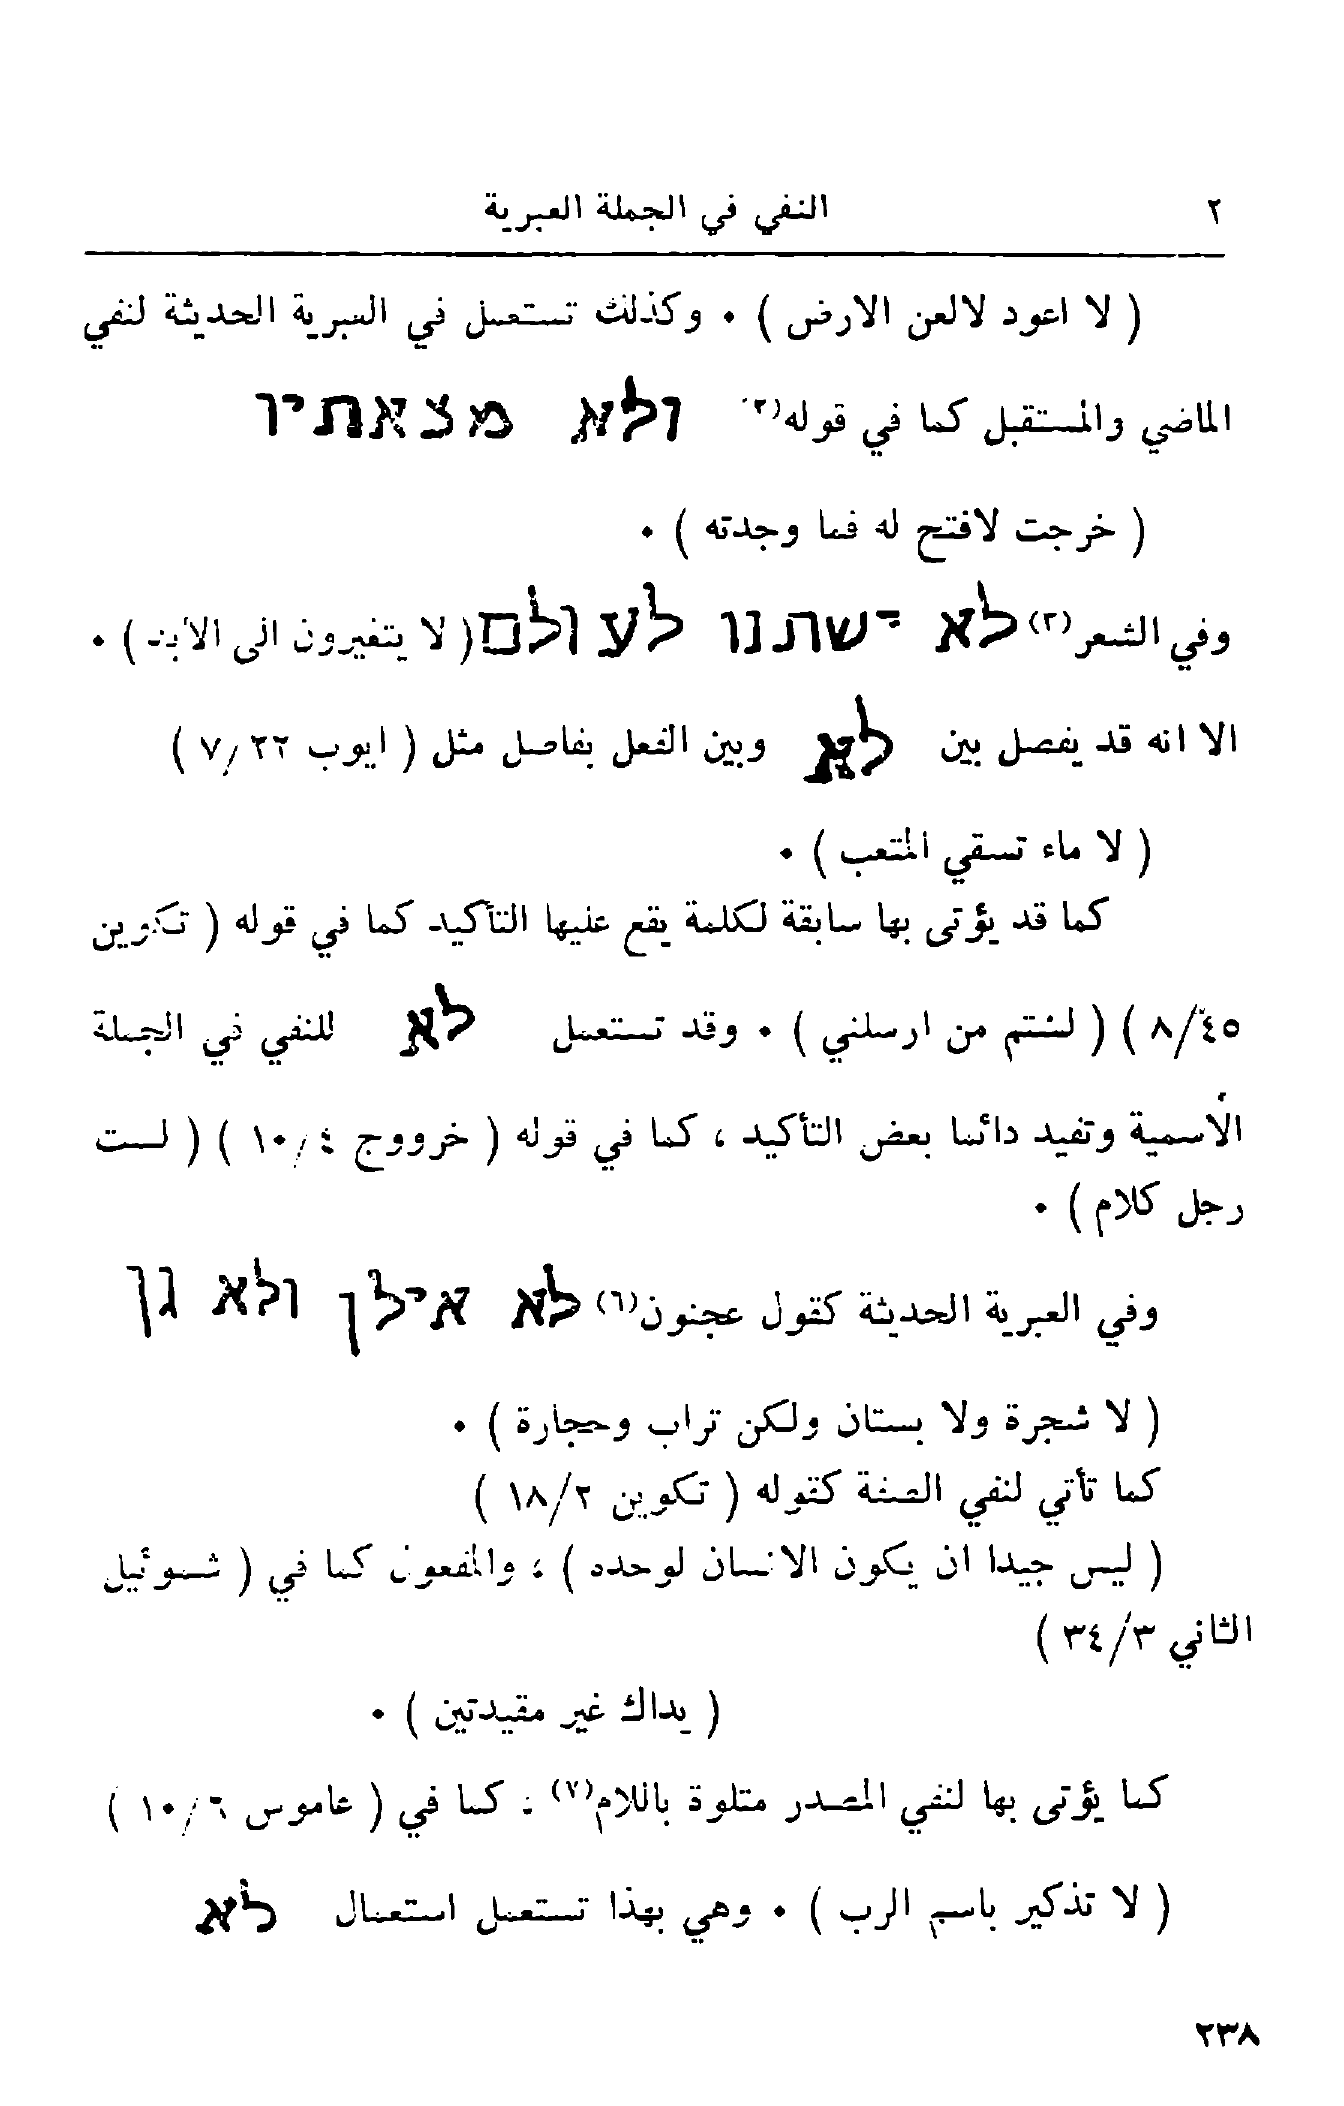 ٢ النفي في الجملة العبرية
( لا اعود لالعن الارض ) ٠ وكذلك تستعمل في العبرية الحديثة لنفي
الماضي والمستقبل كما في قوله(٢) ולא מצאתיו
( خرجت لافتح له فما وجدته ) ٠
وفي الشعر(٣) לא ישתנו לעולם ( لا يتغيرون الى الابد ) ٠
الا انه قد يفصل بين לא وبين الفعل بفاصل مثل ( ايوب ٢٢/٧ )
( لا ماء تسقي المتعب ) ٠
كما قد يؤتى بها سابقة لكلمة يقع عليها التأكيد كما في قوله ( تكوين
٤٥/٨ ) ( لستم من ارسلني ) ٠ وقد تستعمل לא للنفي في الجملة
الأسمية وتفيد دائما بعض التأكيد ، كما في قوله ( خرووج ٤/١٠ ) ( لست
رجل كلام ) ٠
وفي العبرية الحديثة كقول عجنون(٦) לא אילן ולא גן
( لا شجرة ولا بستان ولكن تراب وحجارة ) ٠
كما تأتي لنفي الصفة كقوله ( تكوين ٢/١٨ )
( ليس جيدا ان يكون الانسان لوحده ) ، والمفعول كما في ( شموئيل
الثاني ٣/٣٤ )
( يداك غير مقيدتين ) ٠
كما يؤتى بها لنفي المصدر متلوة باللام(٧) ، كما في ( عاموس ٦/١٠ )
( لا تذكير باسم الرب ) ٠ وهي بهذا تستعمل استعمال לא
٢٣٨